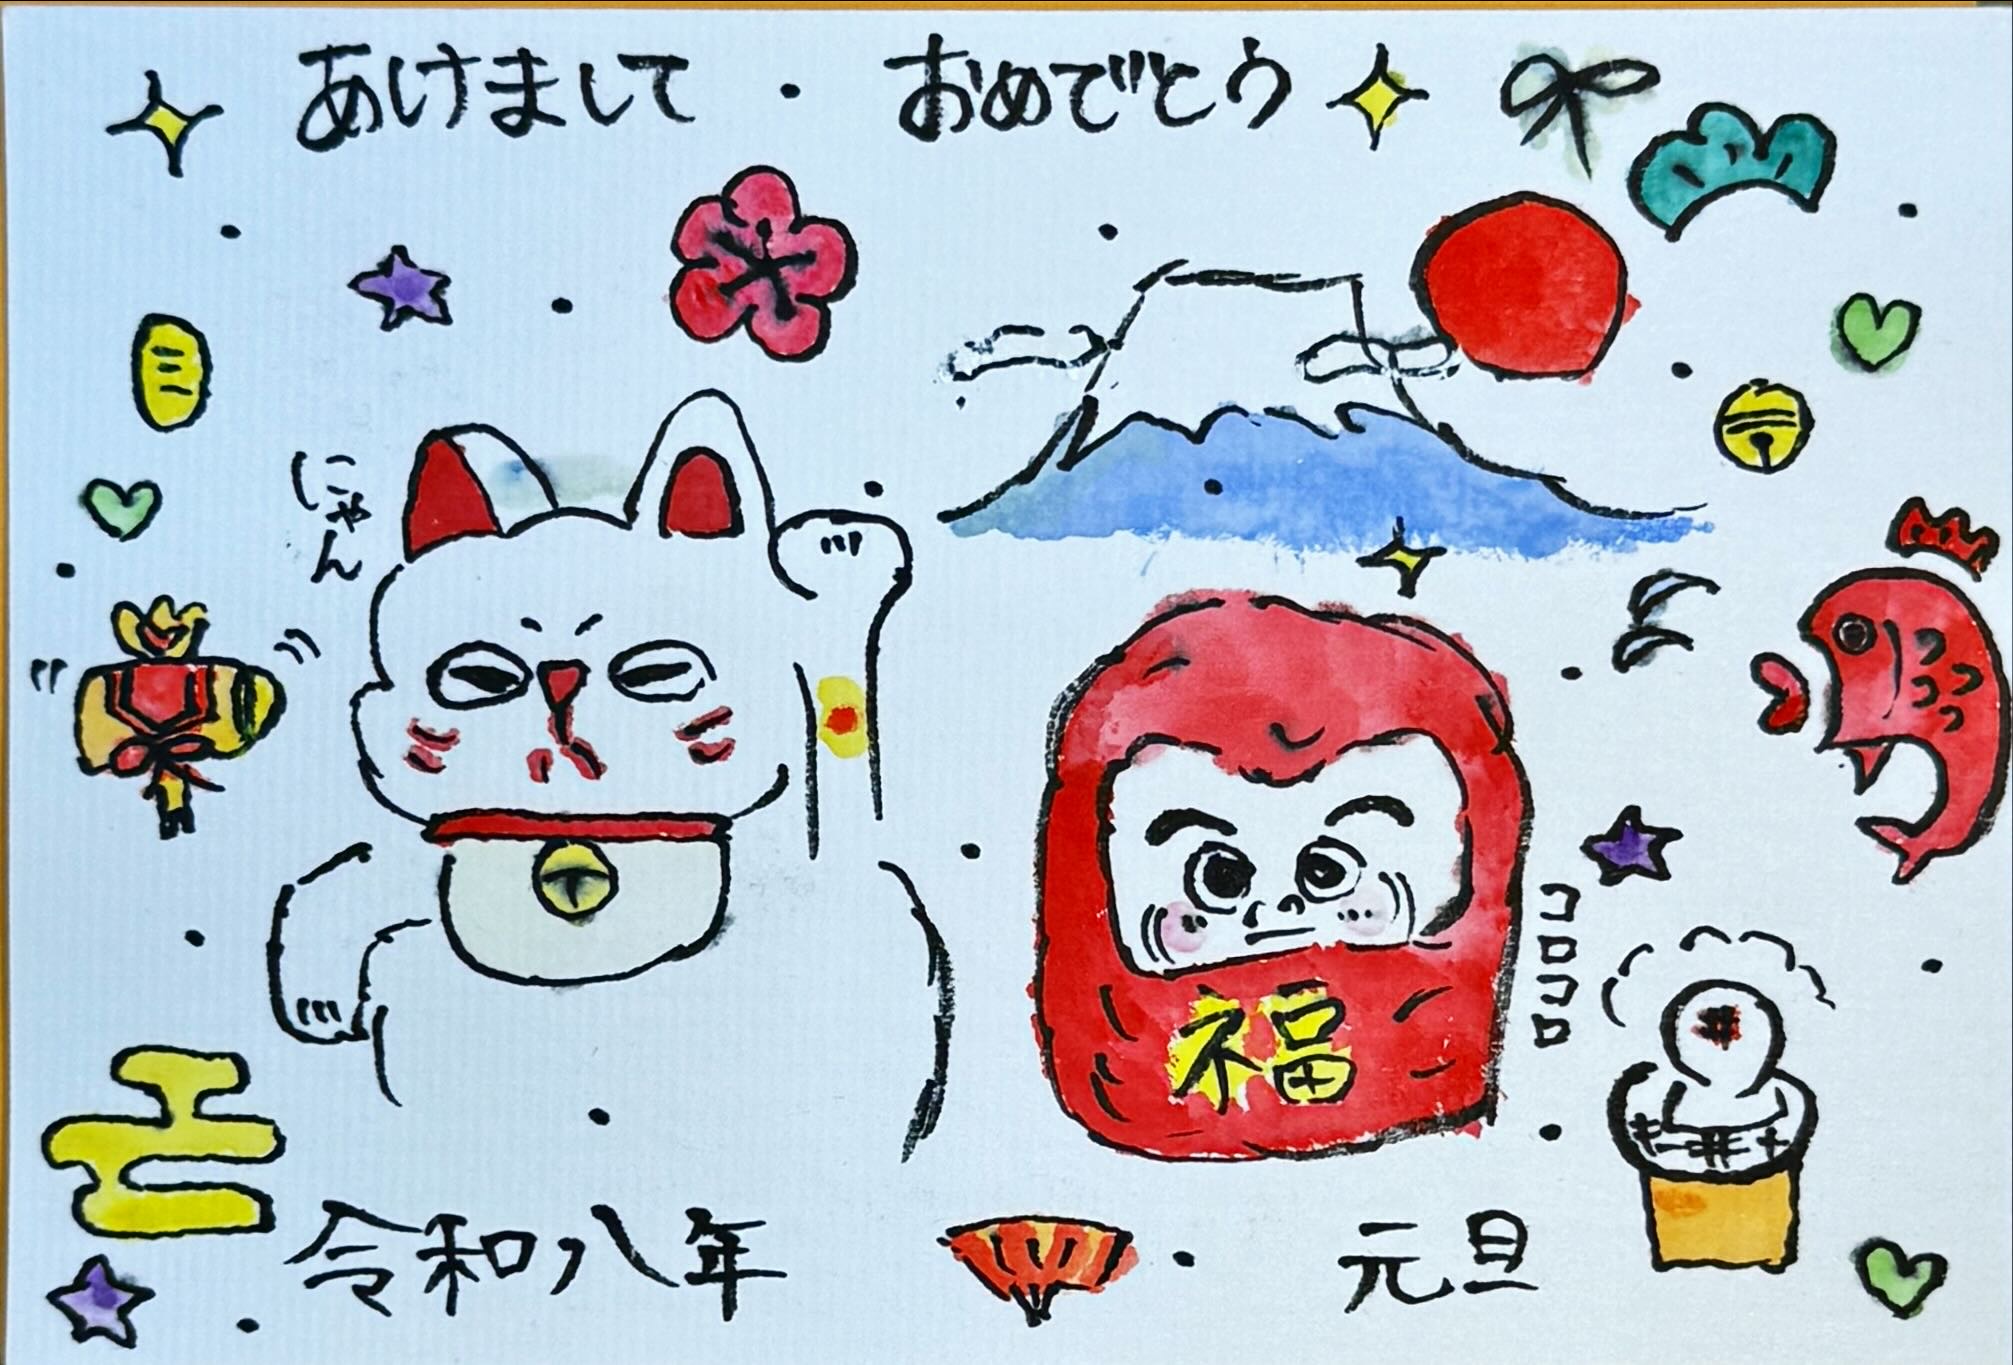 あけまして・おめでとう
にゃん
福
コロコロ
令和八年
元旦